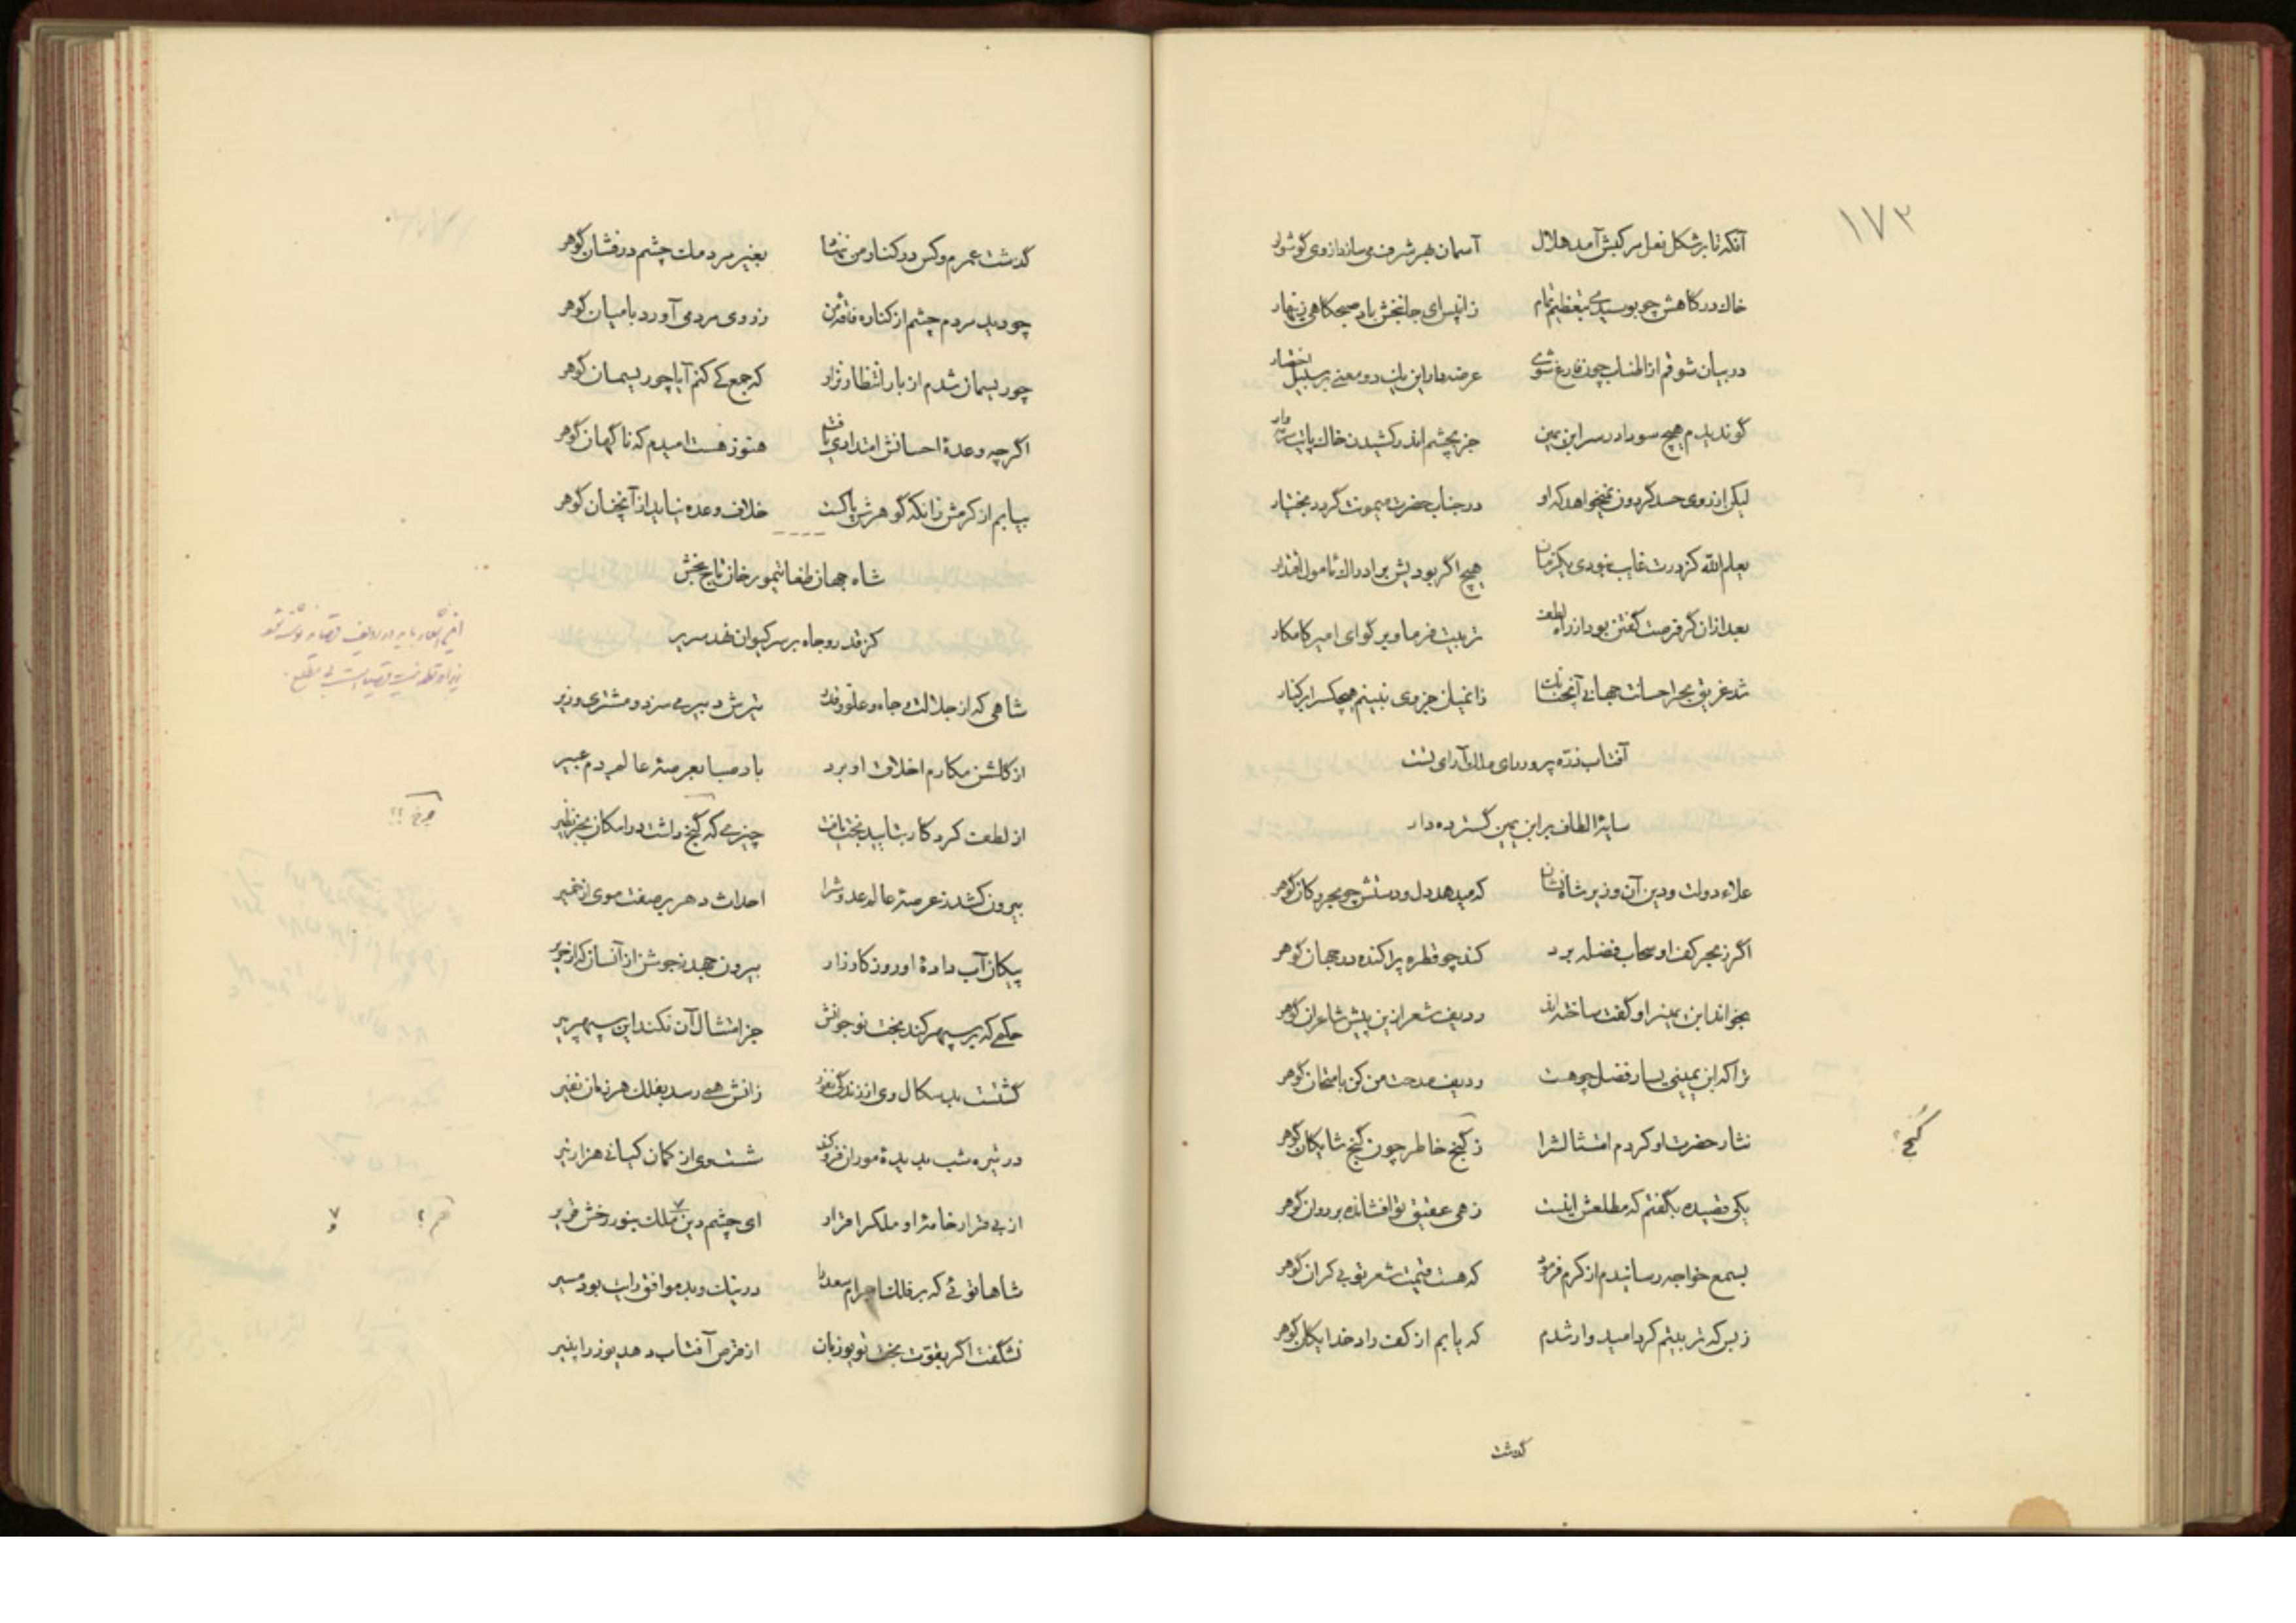 ۱۷۳
آنکه تا بر شکل نعل مرکبش آمد هلال آسمان هر شرف می‌ساند از وی گوشوار
خاک درگاهش چو بوسیدی بتعظیم تمام زان پس ای جانبخش باد صبحگاهی زینهار
در بیان شوقم از اطناب چون فارغ شوی عرضه دار این یک دو معنی بر سبیل اختصار
گو ندیدم هیچ سود در سر ابن یمین جز بچشم اندر کشیدن خاک پایت
لیکن از روی حسد گردون نمیخواهد که او در جناب حضرت میمونت گردد بختیار
یعلم الله کز درت غایب نبودی یکزمان هیچ اگر بودیش بر ادراک مأمول اقتدار
بعد از آن گر فرصت گفتن بود از راه لطف تربیت فرما و بر گو ای امیر کامکار
شد غریق بحر احسانت جهانی آنچنانک زانمیان جز وی نبینم هیچکس را بر کنار
آفتاب ذره پرور رای ملک آرای تست
سایه الطاف بر ابن یمین گسترده دار
علاء دولت و دین آن وزیر شاه نشان که میدهد دل و دستش چو بحر و کان گوهر
اگر ز بحر کف او سحاب فضله برد کند چو قطره پراکنده در جهان گوهر
بخواند ابن یمین را و گفت ساخته‌اند ردیف شعر ازین پیش شاعران گوهر
ترا که ابن یمینی یسار فضل چو هست ردیف مدحت من کن بامتحان گوهر
نثار حضرت او کردم امتثالش را ز گنج خاطر چون گنج شایگان گوهر
گنج
یکی قصیده بگفتم که مطلعش اینست زهی عقیق تو افشانده بر روان گوهر
بسمع خواجه رسانیدم از کرم فرمود که هست قیمت شعر تو بی کران گوهر
ز بس که تربیتم کرد امیدوار شدم که یابم از کف راد خدایگان گوهر
گذشت
گذشت عمرم و کس در کنار من ننهاد بغیر مردمک چشم درفشان گوهر
چو دید مردم چشم از کناره فاقه من ز روی مردمی آورد با میان گوهر
چو ریسمان شدم از بار انتظار نزار که جمع کی کنم آیا چو ریسمان گوهر
اگر چه وعده احسانش امتدادی یافت هنوز هست امیدم که ناگهان گوهر
بیابم از کرمش زانکه گوهرش پاکست خلاف وعده نیاید از آنچنان گوهر
شاه جهان طغایتیمور خان تاج بخش
کز قدر و جاه بر سر کیوان نهد سریر
شاهی که از جلالت و جاه و علو قدر تیرش دبیر می سزد و مشتری وزیر
از گلشن مکارم اخلاق او برد باد صبا بعرصه عالم دم عبیر
از لطف کردگار بتایید بخت یافت چیزی که گنج داشت در امکان بجز نظیر
بیرون کشد ز عرصه عالم عدوش را احداث دهر بر صفت موی از خمیر
پیکان آب داده او روز کارزار بیرون جهد ز جوشن از آنسان که از حریر
حکمی که بر سپهر کند بخت نو جوانش جز امتثال آن نکند این سپهر پیر
گشتست بد سکال وی از زندگی نفور زانش همی رسد بفلک هر زمان نفیر
در تیره شب بدیده موران فرو کند شست وی از کمان کیانی هزار تیر
از بی قرار خامه او ملک را قرار ای چشم دین و ملک بنور رخش قریر
شاها توئی که بر فلک اجرام سعد را در نیک و بد موافق رایت بود مسیر
نشگفت اگر بقوت بخت تو یوز بان از قرص آفتاب دهد یوز را پنیر